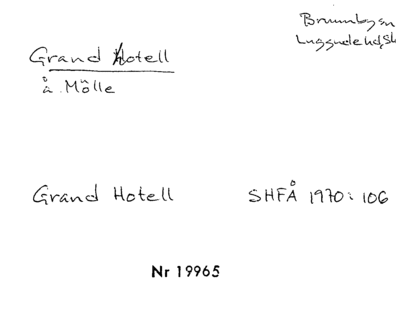 Brunnby sn
Luggude hd, Sk
Grand Hotell
å Mölle
Grand Hotell SHFÅ 1970: 106
Nr 19965